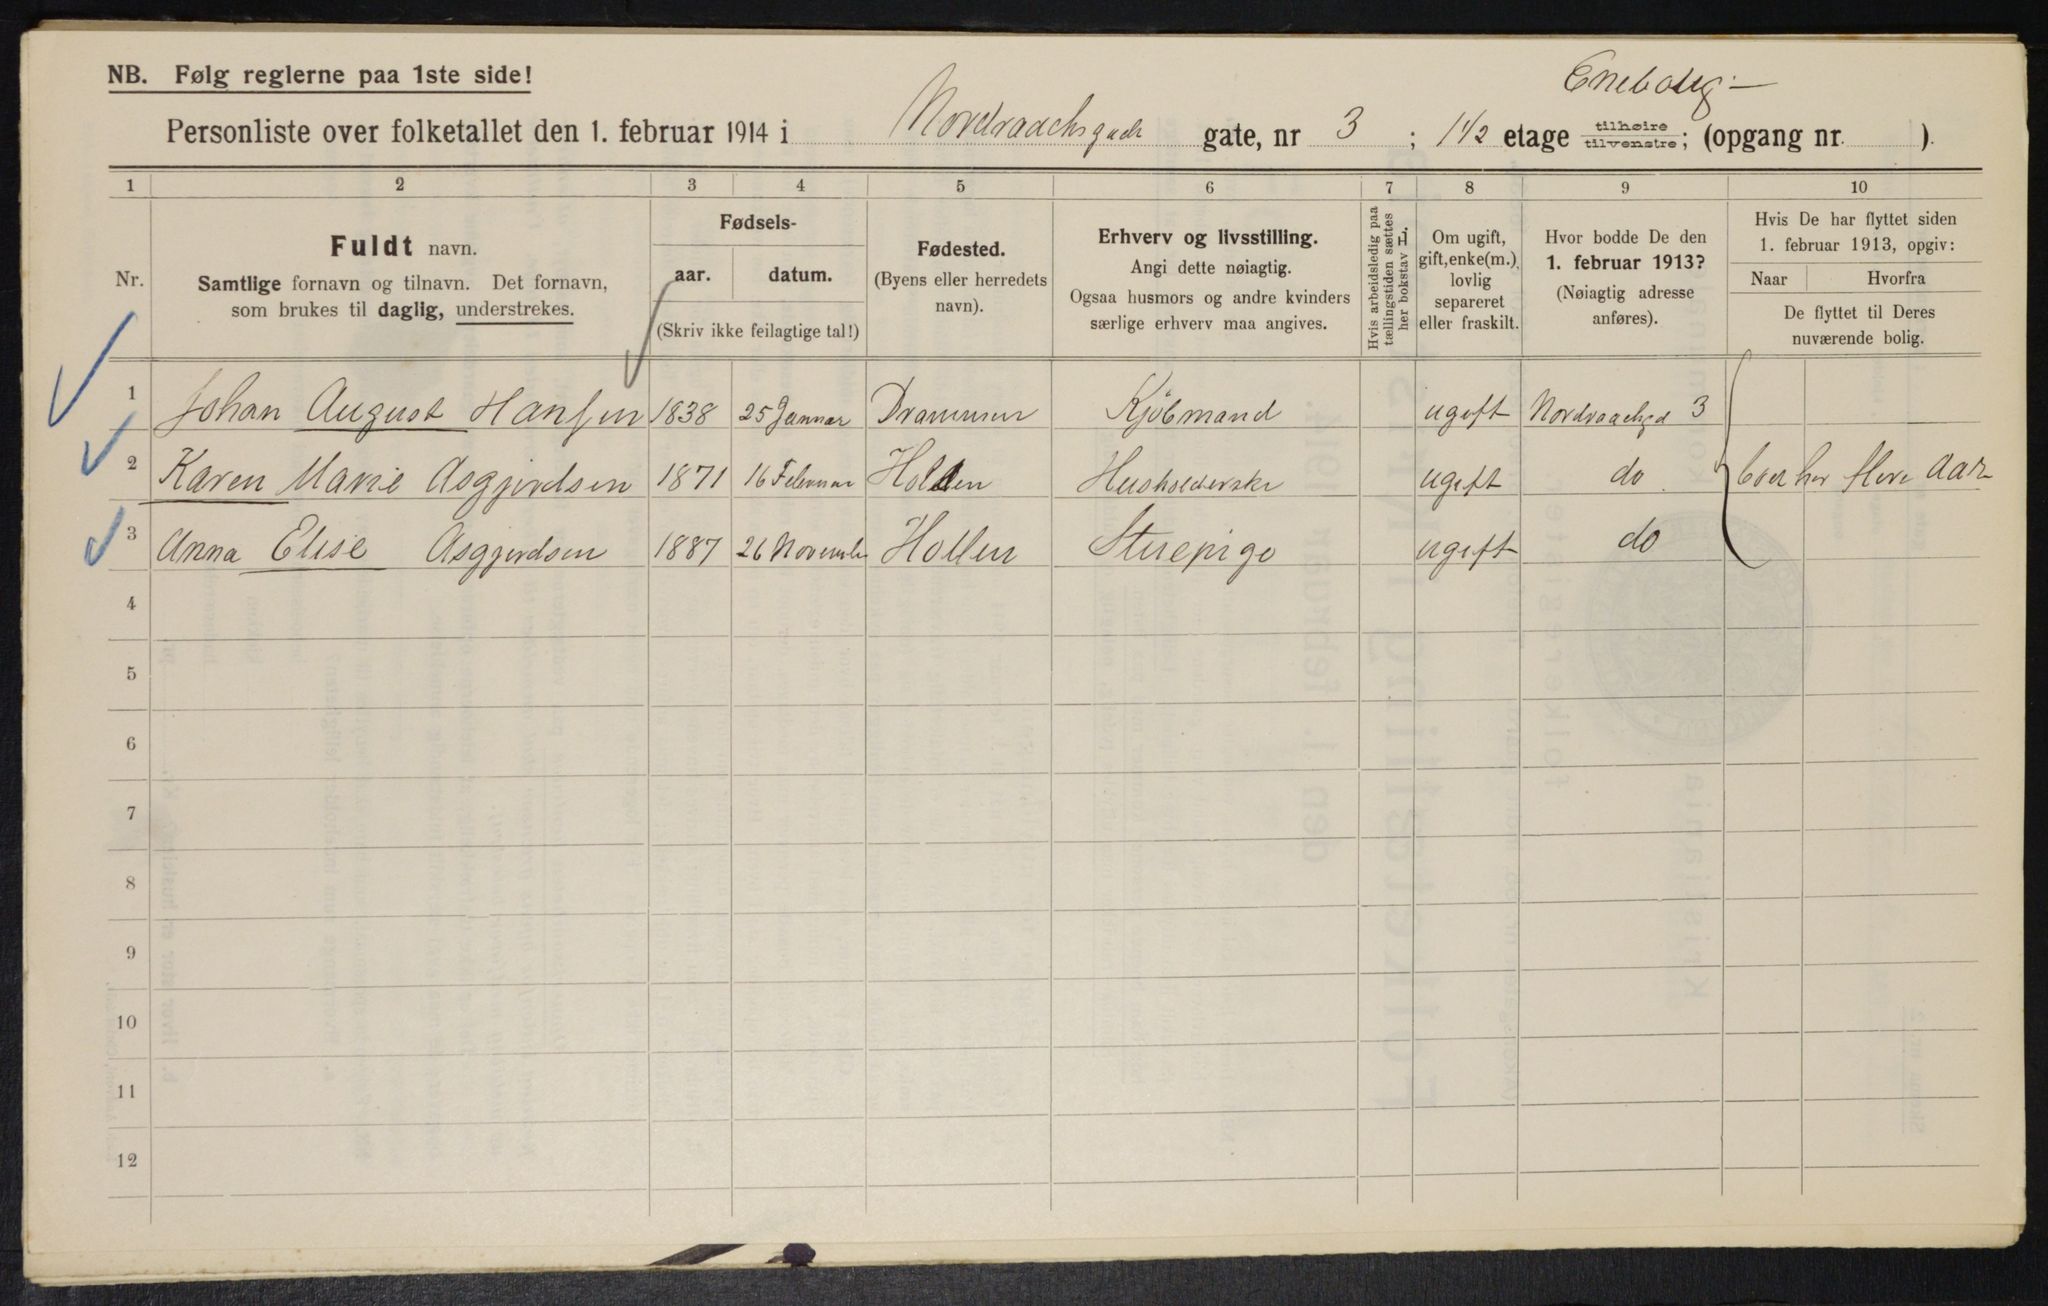 NB. Følg reglerne paa 1ste side!
Enebolig
Personliste over folketallet den 1. februar 1914 i Nordraachsgade gate, nr 3 ; 1 1/2 etage tilhøire / tilvenstre; (opgang nr. ).
1 2 3 4 5 6 7 8 9 10
Nr.
Fuldt navn.
Samtlige fornavn og tilnavn. Det fornavn,
som brukes til daglig, understrekes.
Fødsels-
aar. datum.
(Skriv ikke feilagtige tal!)
Fødested.
(Byens eller herredets
navn).
Erhverv og livsstilling.
Angi dette nøiagtig.
Ogsaa husmors og andre kvinders
særlige erhverv maa angives.
Hvis arbeidsledig paa
tællingstiden sættes
her bokstav L.
Om ugift,
gift, enke(m.),
lovlig
separeret
eller fraskilt.
Hvor bodde De den
1. februar 1913?
(Nøiagtig adresse
anføres).
Hvis De har flyttet siden
1. februar 1913, opgiv:
Naar Hvorfra
De flyttet til Deres
nuværende bolig.
1 Johan August Hansen 1838 25 Januar Drammen Kjøbmand ugift Nordraachgd 3
2 Karen Marie Asgjerdsen 1871 16 Februar Holden Husholderske ugift do boet her flere Aar
3 Anna Elise Asgjerdsen 1887 26 November Hollen Stuepige ugift do
4
5
6
7
8
9
10
11
12